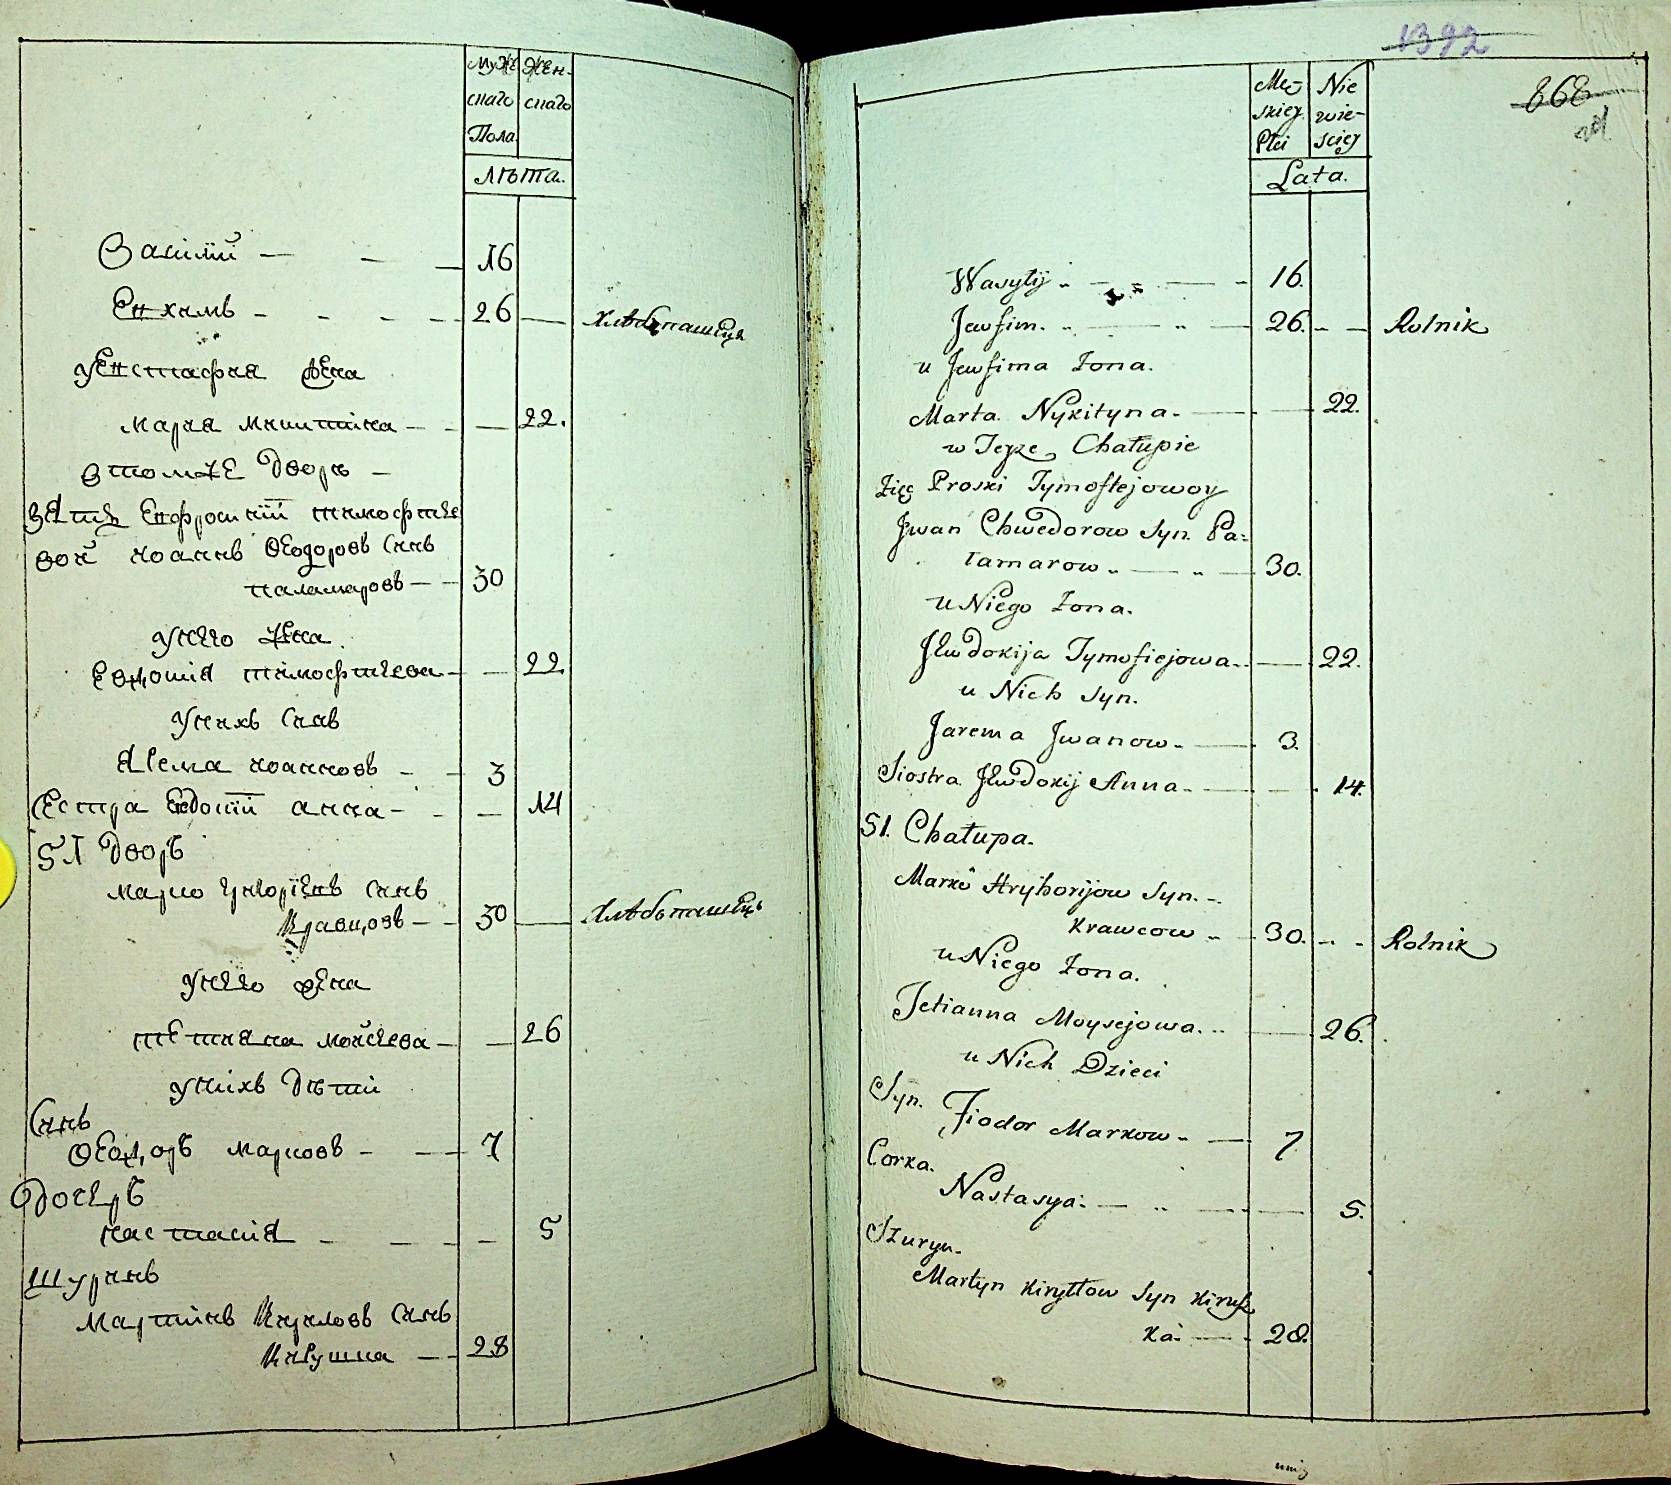 Муже Жен-
скаго скаго
Пола
Лѣта.
Василій — — — 16
Евхимъ - - - - 26 — Хлѣбопашецъ
у Евстафия жена
Мария Никитина — - — 22.
В томже Дворѣ —
Зять Евфросинїи тимофѣе
вой иоаннъ Ѳеодоровъ Синъ
паламаровъ — — 30
у него жена.
Евдокия тимофѣева — — 22
у нихъ Синъ
Ярема иоанновъ - - 3
Сестра Евдокїи анна - - — 14
51 Дворъ
Марко григориевъ Синъ
Кравцовъ — - 30 — Хлѣбопашецъ
у него жена
тетияна моисеева — — 26
у нихъ Дѣти
Синъ
Ѳеодоръ марковъ - — 7
Дочеръ
настасия - — — - 5
Шуринъ
Мартинъ Кириловъ Синъ
— - 28
1392
868
Mę- Nie
skiey wie-
Płci sciey
Lata.
Wasylij 16.
Jewfim. 26. - — Rolnik
u Jewfima Zona.
Marta Nykityna - — - — 22.
w Teyze Chałupie
Zięć Proski Tymoftejowoy
Jwan Chwedorow Syn. Pa-
łamarow — 30.
u Niego Zona.
Jewdokija Tymofiejowa - — 22.
u Nich Syn.
Jarema Jwanow - — 3.
Siostra Jewdokij Anna - — - 14.
51. Chałupa.
Marko Hryhorijow Syn. -
Krawcow - 30. - - Rolnik
u Niego Zona.
Tetianna Moysejowa. - — 26.
u Nich Dzieci
Syn.
Fiodor Markow - — 7
Corka.
Nastasya - — - — 5.
Szuryn -
Martyn Kiryłłow Syn
ka - — 28.